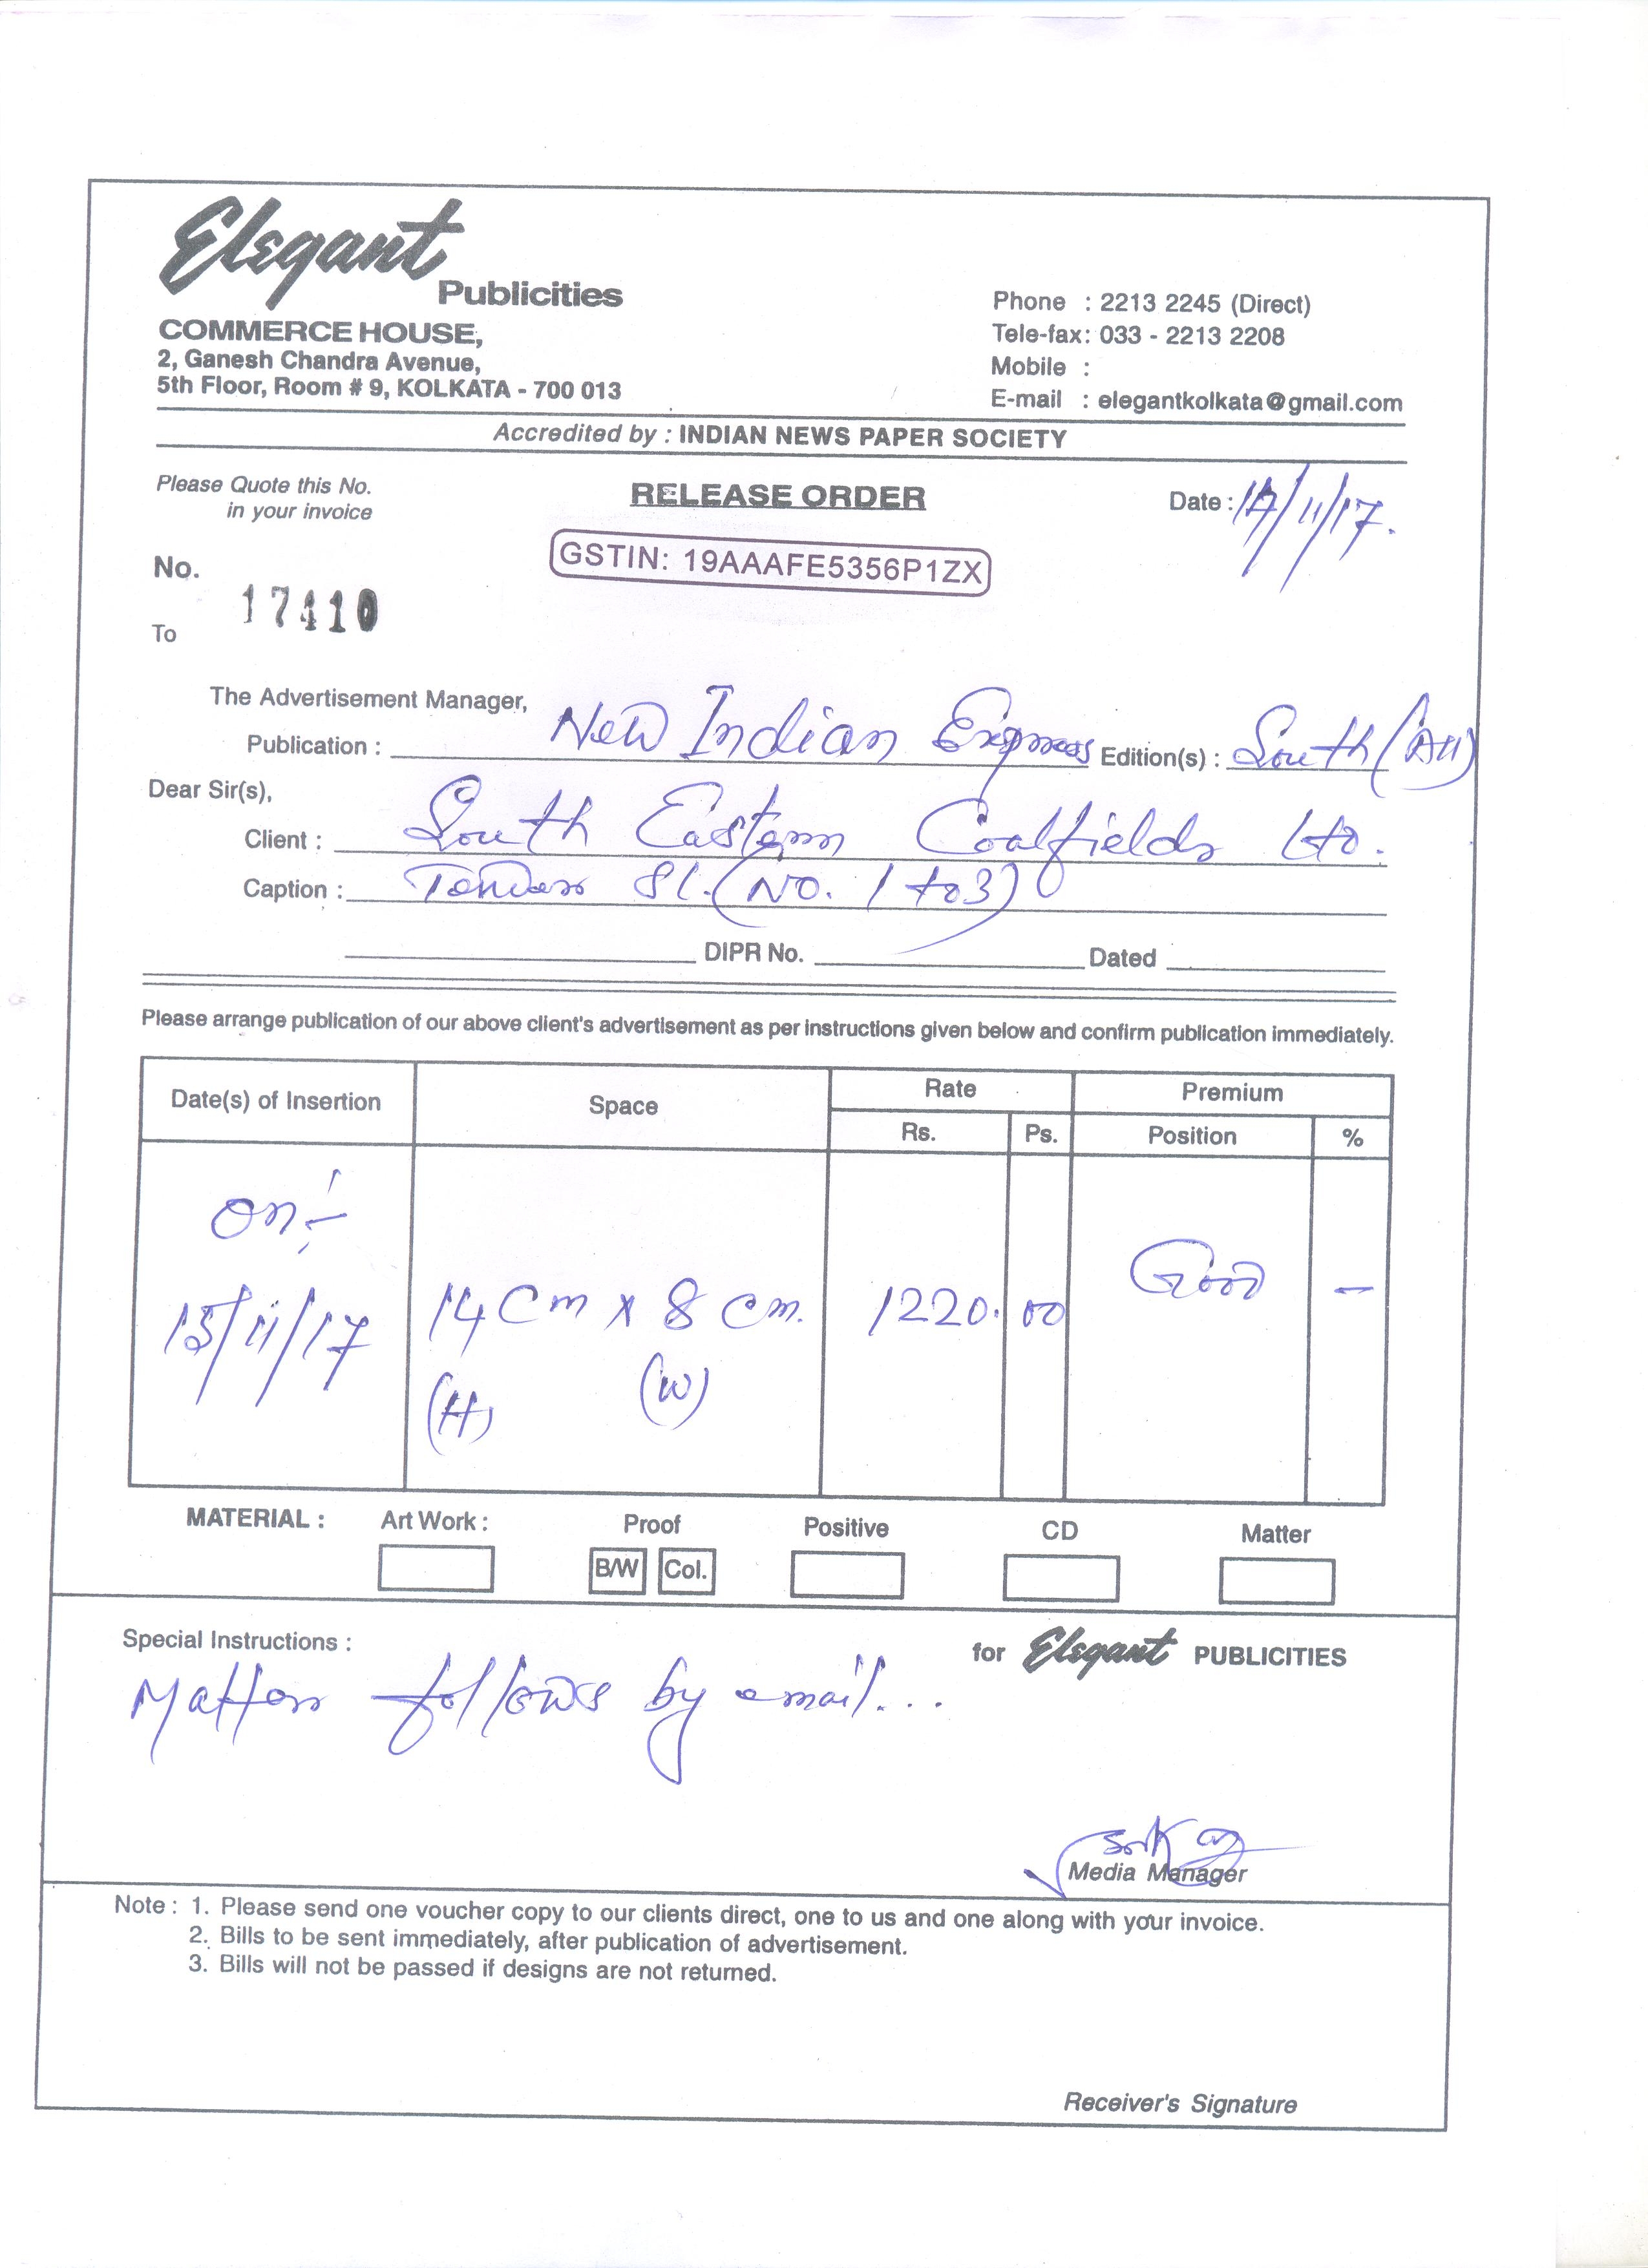 Elegant
Publicities
COMMERCE HOUSE,
2, Ganesh Chandra Avenue,
5th Floor, Room # 9, KOLKATA - 700 013
Phone : 2213 2245 (Direct)
Tele-fax: 033 - 2213 2208
Mobile :
E-mail : elegantkolkata@gmail.com
Accredited by : INDIAN NEWS PAPER SOCIETY
Please Quote this No.
in your invoice
RELEASE ORDER
Date : /11/17.
GSTIN: 19AAAFE5356P1ZX
No.
17410
To
The Advertisement Manager,
Publication : New Indian Express Edition(s) : South (All)
Dear Sir(s),
Client : South Eastern Coalfields Ltd.
Caption : Tenders Sl. (No. 1 to 3)
DIPR No. Dated
Please arrange publication of our above client's advertisement as per instructions given below and confirm publication immediately.
Date(s) of Insertion Space Rate Premium
Rs. Ps. Position %
on:-
15/11/17 14 cm x 8 cm. 1220. 00 Good -
(H) (W)
MATERIAL : Art Work : Proof Positive CD Matter
B/W Col.
Special Instructions :
for Elegant PUBLICITIES
Matter follows by email...
Media Manager
Note : 1. Please send one voucher copy to our clients direct, one to us and one along with your invoice.
2. Bills to be sent immediately, after publication of advertisement.
3. Bills will not be passed if designs are not returned.
Receiver's Signature